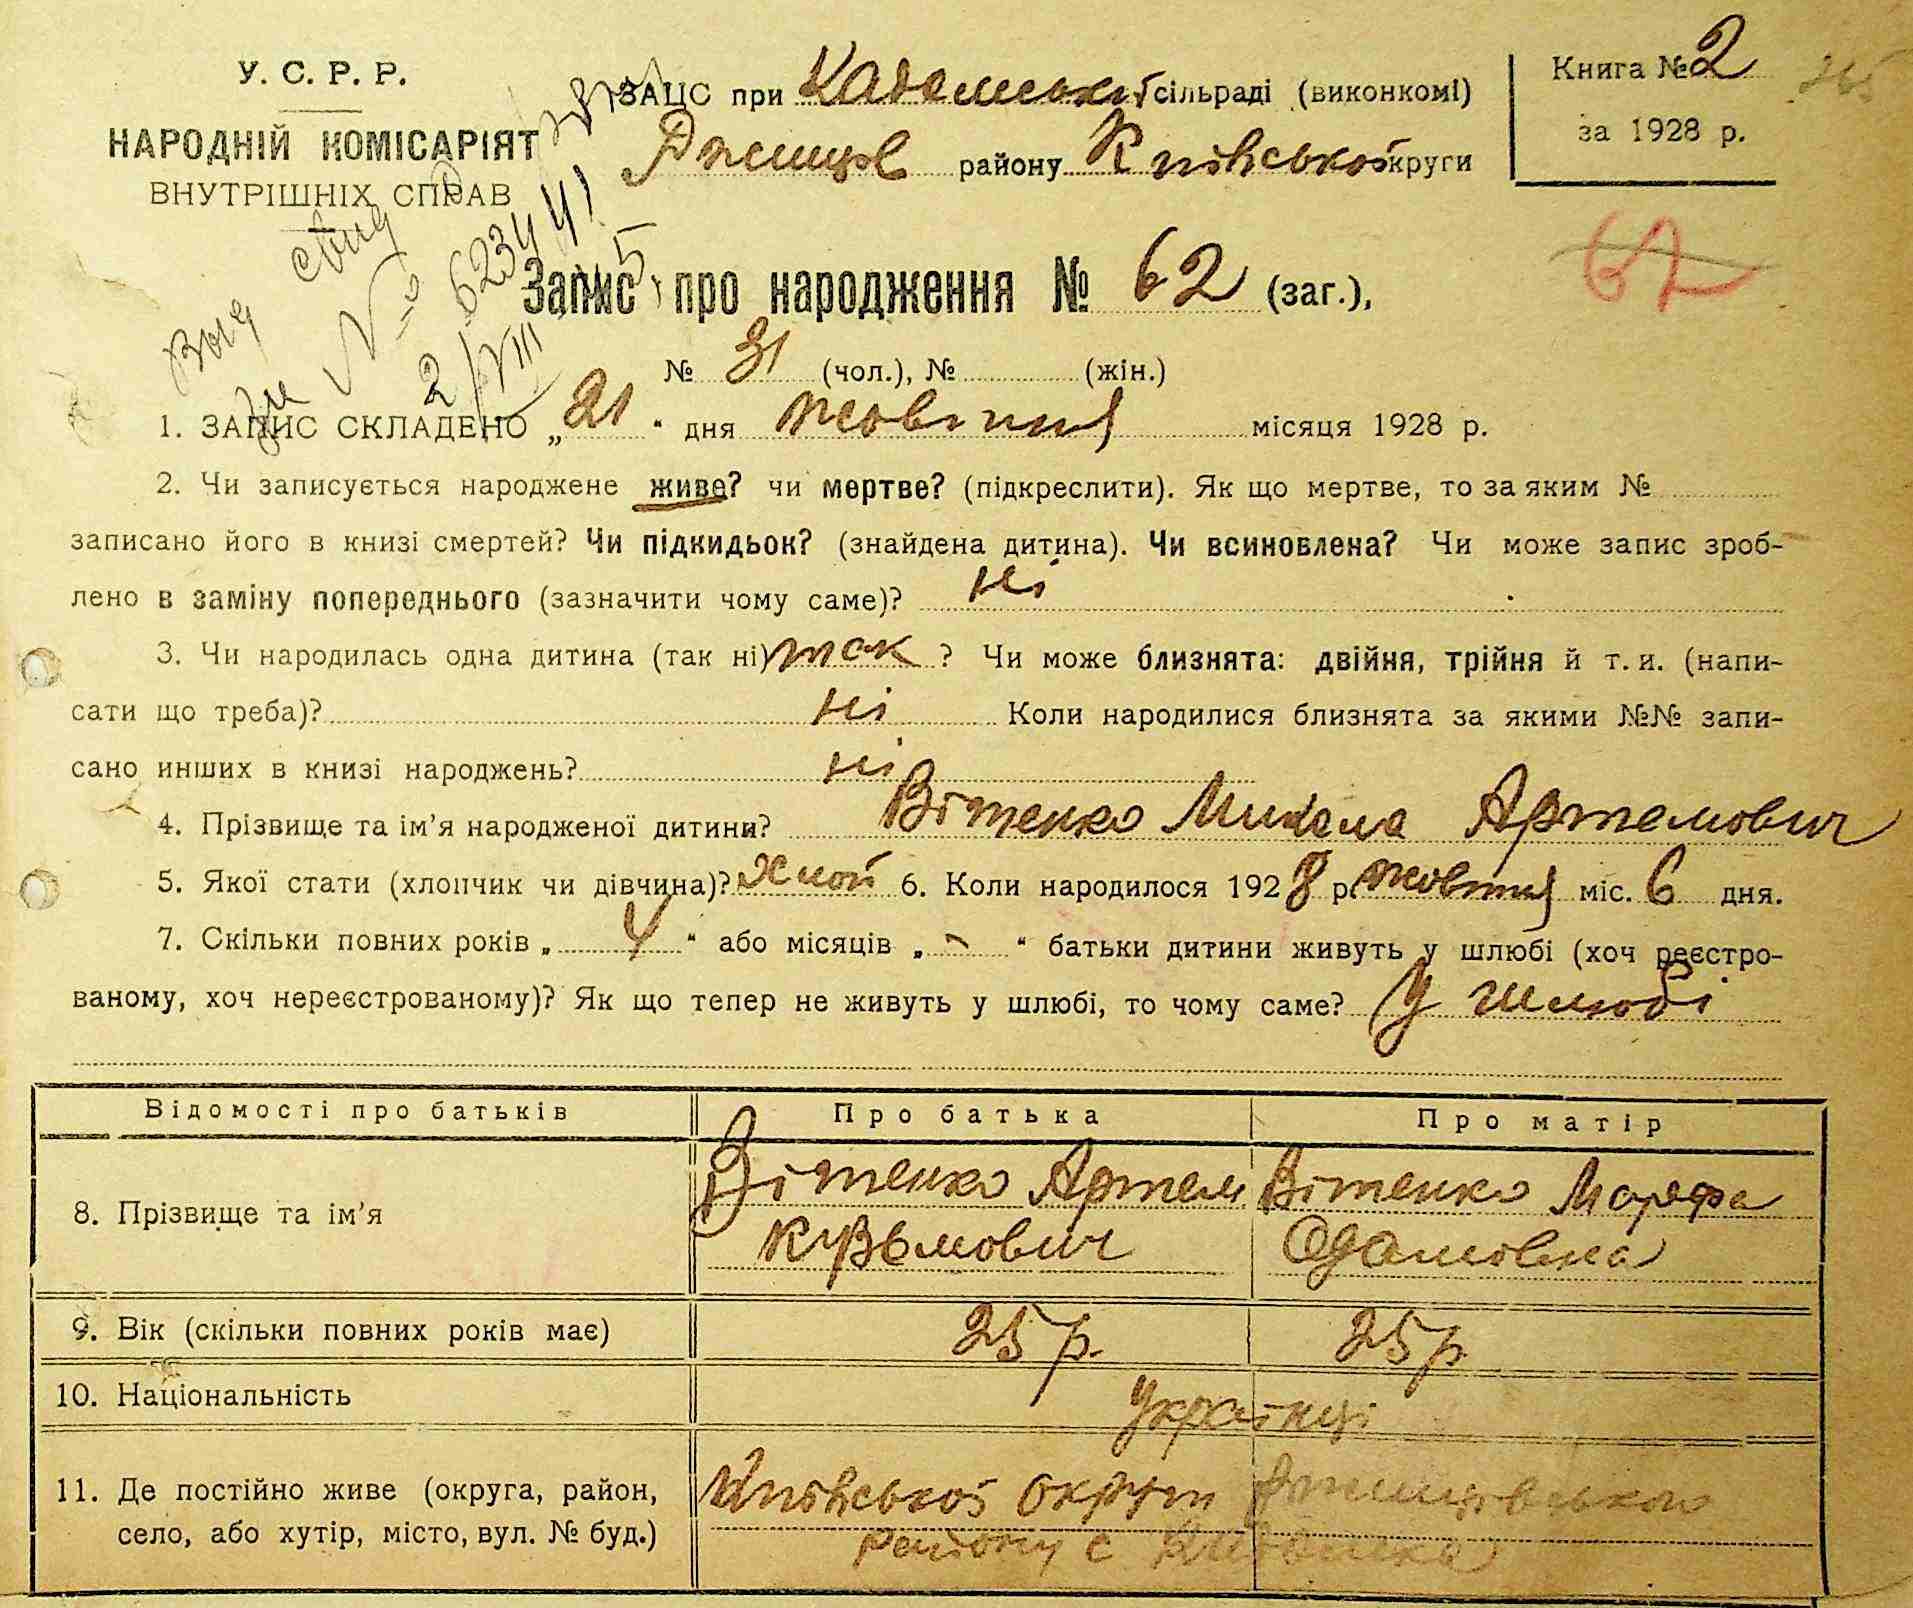 У. С. Р. Р.
НАРОДНІЙ КОМІСАРІЯТ
ВНУТРІШНІХ СПРАВ
ЗАЦС при сільраді (виконкомі)
району Київської округи
Книга № 2
за 1928 р.
62
Запис про народження № 62 (заг.),
№ 31 (чол.), № (жін.)
1. ЗАПИС СКЛАДЕНО „21“ дня жовтня місяця 1928 р.
2. Чи записується народжене живе? чи мертве? (підкреслити). Як що мертве, то за яким №
записано його в книзі смертей? Чи підкидьок? (знайдена дитина). Чи всиновлена? Чи може запис зроб-
лено в заміну попереднього (зазначити чому саме)? ні
3. Чи народилась одна дитина (так ні) так ? Чи може близнята: двійня, трійня й т. и. (напи-
сати що треба)? ні Коли народилися близнята за якими №№ запи-
сано инших в книзі народжень? ні
4. Прізвище та ім’я народженої дитини? Вітенко Микола Артемович
5. Якої стати (хлопчик чи дівчина)? 6. Коли народилося 1928 р. жовтня міс. 6 дня.
7. Скільки повних років „ 4 “ або місяців „ - “ батьки дитини живуть у шлюбі (хоч реєстро-
ваному, хоч нереєстрованому)? Як що тепер не живуть у шлюбі, то чому саме? У шлюбі
Відомості про батьків Про батька Про матір
8. Прізвище та ім’я Вітенко Артем Кузьмович Вітенко Марфа Одамовна
9. Вік (скільки повних років має) 25 р. 25 р
10. Національність Українці
11. Де постійно живе (округа, район, Київської округи
село, або хутір, місто, вул. № буд.) району с